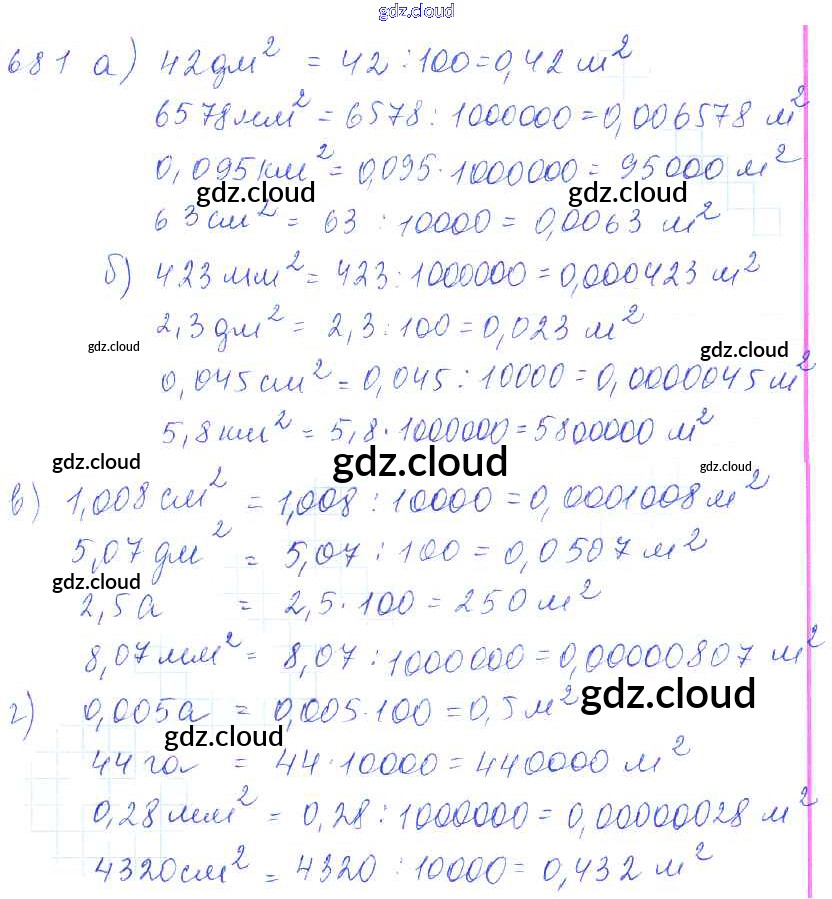 gdz.cloud
681 а) 42дм² = 42 : 100 = 0,42 м²
6578мм² = 6578 : 1000000 = 0,006578 м²
0,095км² = 0,095 · 1000000 = 95000 м²
gdz.cloud gdz.cloud
63см² = 63 : 10000 = 0,0063 м²
б) 423мм² = 423 : 1000000 = 0,000423 м²
2,3дм² = 2,3 : 100 = 0,023 м²
gdz.cloud gdz.cloud
0,045см² = 0,045 : 10000 = 0,0000045м²
5,8км² = 5,8 · 1000000 = 5800000 м²
gdz.cloud gdz.cloud gdz.cloud
в) 1,008см² = 1,008 : 10000 = 0,0001008м²
5,07дм² = 5,07 : 100 = 0,0507 м²
gdz.cloud
2,5а = 2,5 · 100 = 250 м²
8,07мм² = 8,07 : 1000000 = 0,00000807 м²
г) 0,005а = 0,005 · 100 = 0,5 м²
gdz.cloud
gdz.cloud
44га = 44 · 10000 = 440000 м²
0,28мм² = 0,28 : 1000000 = 0,00000028 м²
4320см² = 4320 : 10000 = 0,432 м²